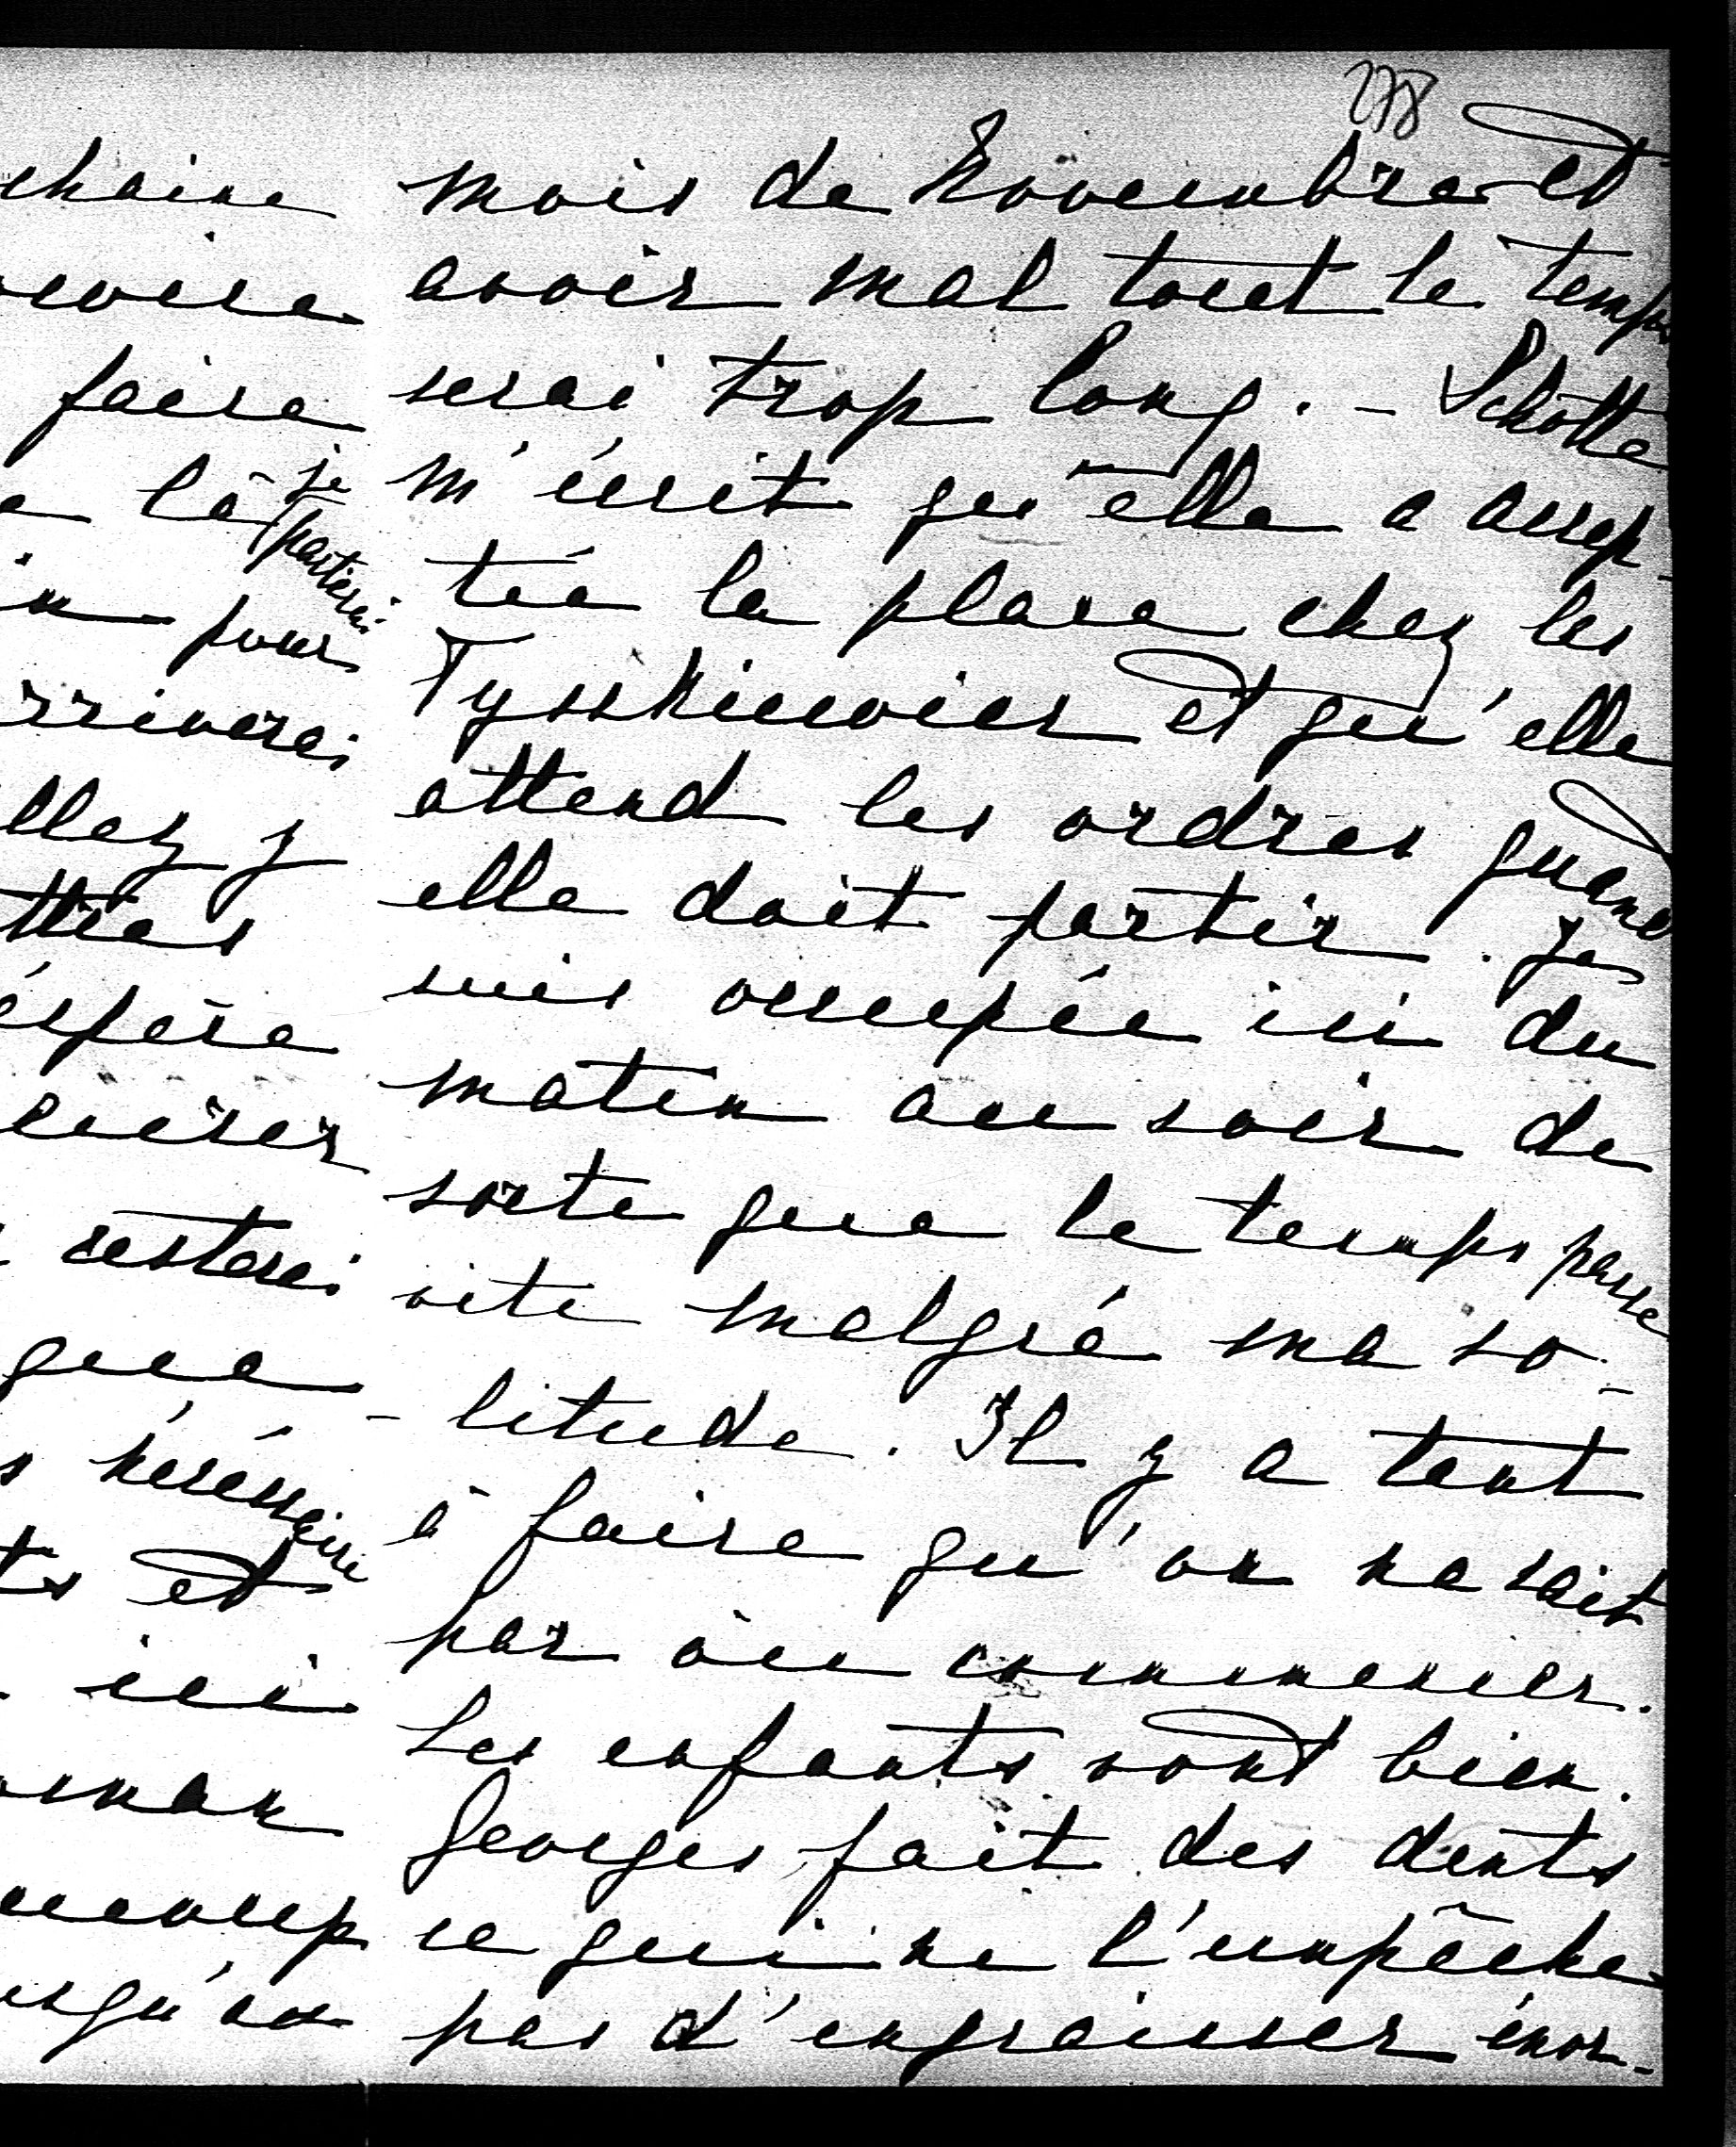 278
chaine
faire
là je
partirai
pour
rriverai
llez y
ttées
éspère
restarai
que
nécéssaire
ts et
ici
oman
usqu'au
mois de Novembre et
avoir mal tout le temps
serai trop long. - Schotte
m'écrit qu'elle a accep-
tée la place chez les
Tysskiewicz et qu'elle
attend les ordres quand
elle doit partir. Je
suis occupée ici du
matin au soir de
sorte que le temps passe
vite malgré ma so-
- litude. Il y a tant
à faire qu'on ne sait
par où commencer.
Les enfants vont bien.
Georges fait des dents
ce qui ne l'empêche
pas d'engraisser énor-